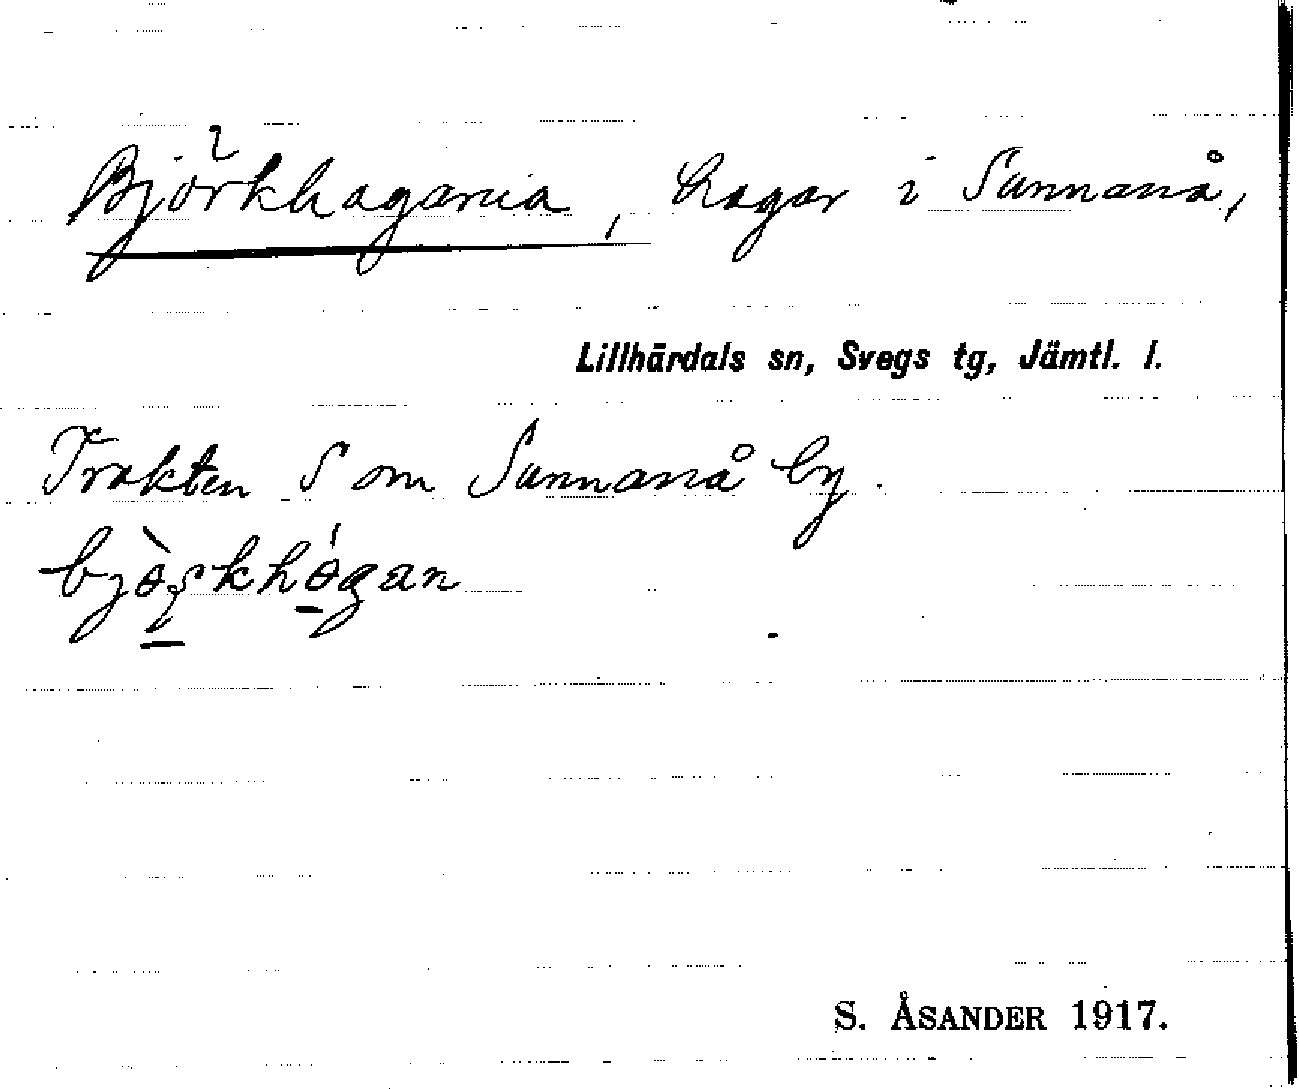 Björkhagarna, hagar i Sunnanå,
Lillhärdals sn, Svegs tg, Jämtl. l.
Trakten S om Sunnanå by.
S. ÅSANDER 1917.